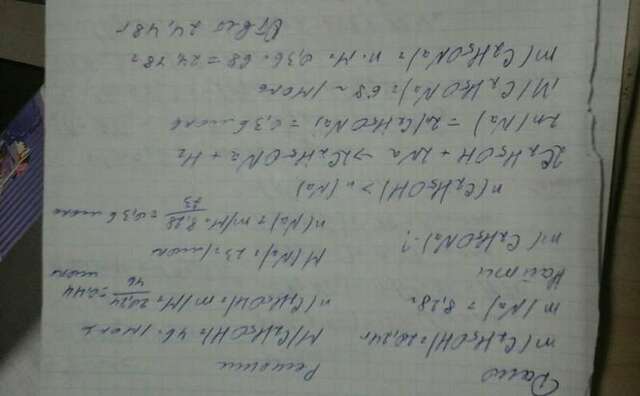 Дано
Решение
m(C₂H₅OH)=20,24г
M(C₂H₅OH)=46г/моль
m(Na)=8,28г
n(C₂H₅OH)=m/M=20,24/46=0,44 моль
Найти
M(Na)=23г/моль
m(C₂H₅ONa)-?
n(Na)=m/M=8,28/23=0,36 моль
n(C₂H₅OH)>n(Na)
2C₂H₅OH+2Na→2C₂H₅ONa+H₂
2n(Na)=2n(C₂H₅ONa)=0,36 моль
M(C₂H₅ONa)=68г/моль
m(C₂H₅ONa)=n·M=0,36·68=24,48г
Ответ 24,48г